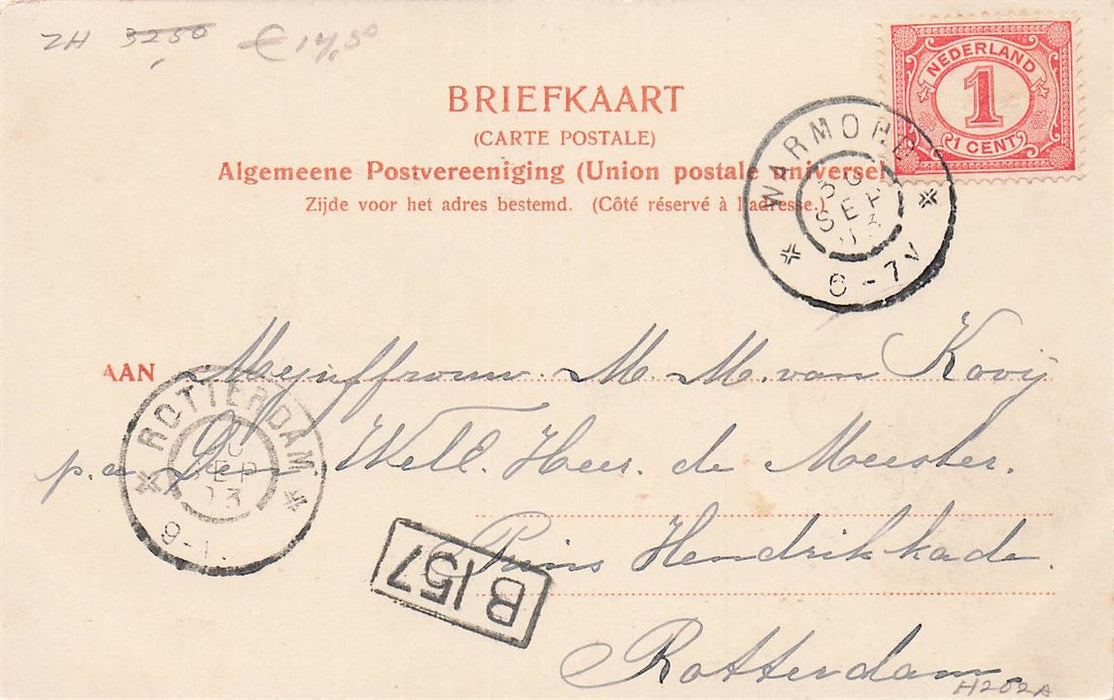 ZH 3250 € 14,50
BRIEFKAART
(CARTE POSTALE)
Algemeene Postvereeniging (Union postale universel
Zijde voor het adres bestemd. (Côté réservé à l'adresse.)
NEDERLAND
1
1 CENT
WARMOND
30
SEP
03
6-7V
AAN Mejuffrouw. M. M. van Kooij
p.a Den Well. Heer. de Meester.
Prins Hendrikkade.
Rotterdam.
ROTTERDAM
SEP
03
9-1
B 157
H202A